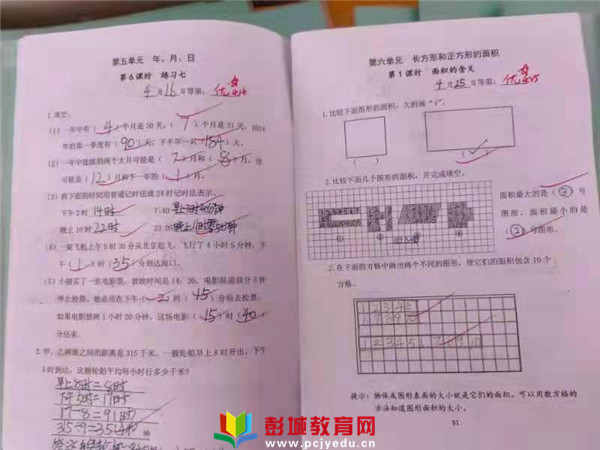 第五单元 年、月、日
第6课时 练习七
4月16日等第:优
1.填空。
(1)一年中有(4)个月是30天,(7)个月是31天,
年的第一季度有(90)天,下半年一共(184)天。
(2)一年中连续的两个大月可能是(7)月和(8)月,也
可能是(12)月和下一年的(1)月。
(3)将下面的时间用普通记时法或24时记时法表示。
下午2时 14时 7:40
晚上10时 22时
(4)一架飞机上午9时30分从北京起飞,飞行了4小时5分钟,下
午(1)时(35)分到达海口。
(5)小强买了一张电影票,放映时间是14:20,电影院提前5分钟
停止检票,他必须在下午(2)时(15)分前去检票,
如果电影放映1小时20分钟,这场电影(15)时(40)
分结束。
2.甲、乙两港之间的距离是315千米。一艘轮船早上8时开出,下午
5时到达,这艘轮船平均每小时行多少千米?
早上8时=8时
17-8=9(时)
第六单元 长方形和正方形的面积
第1课时 面积的含义
4月25日等第:优
1.比较下面图形的面积,大的画“√”。
2.比较下面几个图形的面积,并完成填空。
面积最大的是(②)号
图形,面积最小的是
号图形。
2.在下面的方格中画出两个不同的图形,使它们的面积包含10个
方格。
提示:物体或图形表面的大小就是它们的面积,可以用数方格的
方法知道图形面积的大小。
彭城教育网
www.pcjyedu.cn